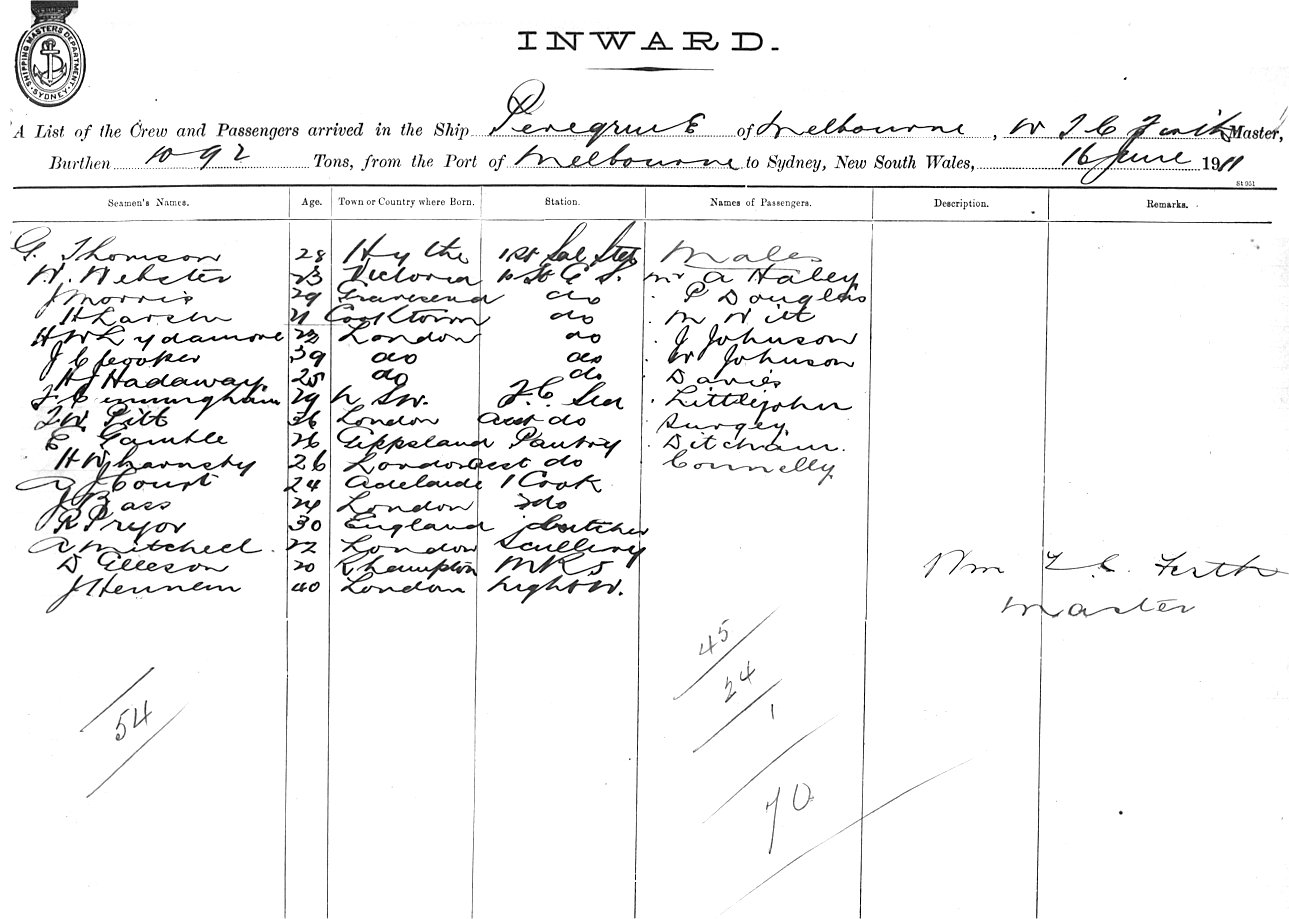 SHIPPING MASTERS DEPARTMENT. SYDNEY.
INWARD.
A List of the Crew and Passengers arrived in the Ship Peregrine of Melbourne, W T C Firth Master,
Burthen 1092 Tons, from the Port of Melbourne to Sydney, New South Wales, 16 June 1911
St 951
Seamen's Names. Age. Town or Country where Born. Station. Names of Passengers. Description. Remarks.
G. Thomson 28 Hythe 1st Sal Stew Males
W. Webster 23 Victoria Mr A Haley
J Morris 29 Gravesend do P Douglas
H Larsen 21 Cooktown do M Witt
H W Lydamore 23 London do J Johnson
J C Hooker 39 do do W Johnson
H J Hadaway 25 do do Davies
F Cunningham 29 N SW. F.C. Littlejohn
T W Pitt 36 London asst do Surgey
E Gamble 26 Gippsland Pantry Ditcham.
H W 26 London asst do Connelly
A J Court 24 Adelaide 1 Cook
J Bass 24 London 2 do
R Pryor 30 England butcher
A Mitchell 22 London Scullery
D Elleson 20 MRS Wm T. C. Firth
J Hennem 40 London Master
45
24
54
1
70